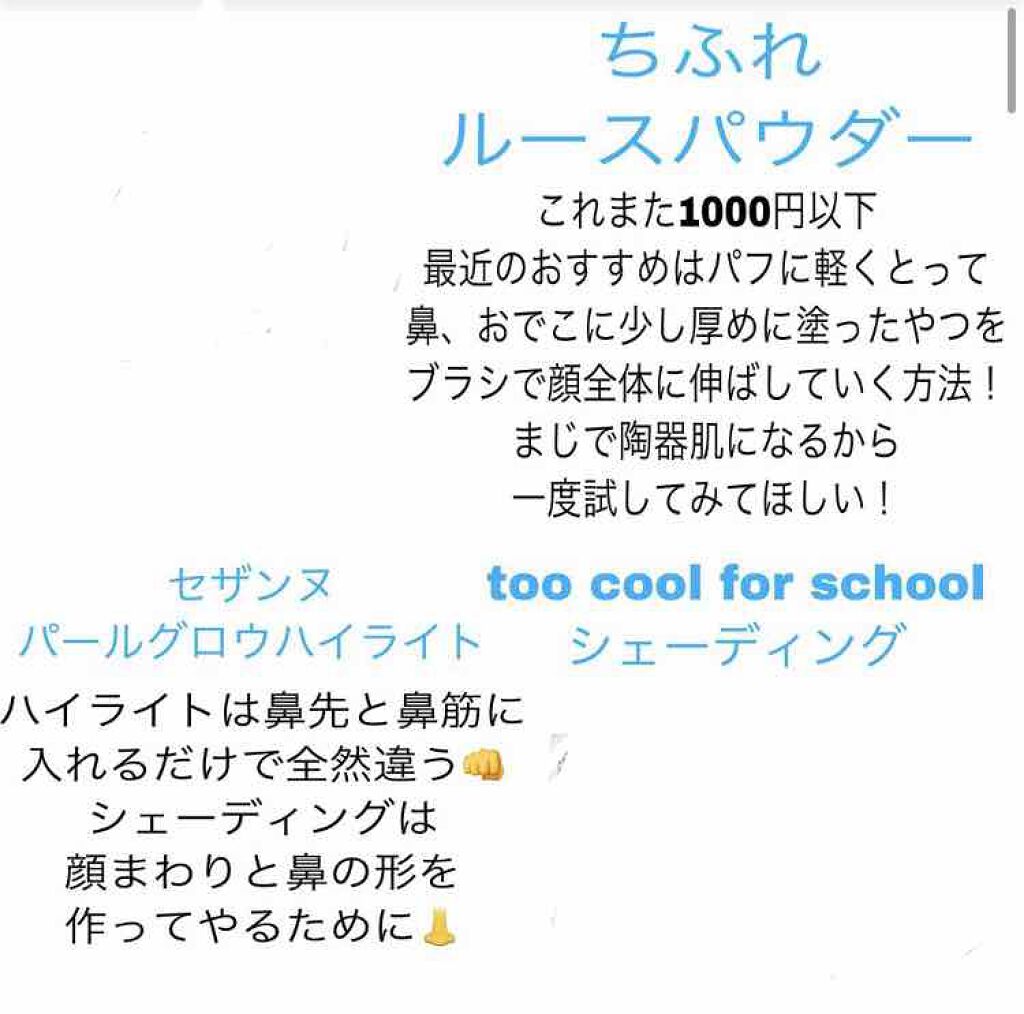 ちふれ
ルースパウダー
これまた1000円以下
最近のおすすめはパフに軽くとって
鼻、おでこに少し厚めに塗ったやつを
ブラシで顔全体に伸ばしていく方法！
まじで陶器肌になるから
一度試してみてほしい！
セザンヌ
パールグロウハイライト
ハイライトは鼻先と鼻筋に
入れるだけで全然違う👊
シェーディングは
顔まわりと鼻の形を
作ってやるために👃
too cool for school
シェーディング